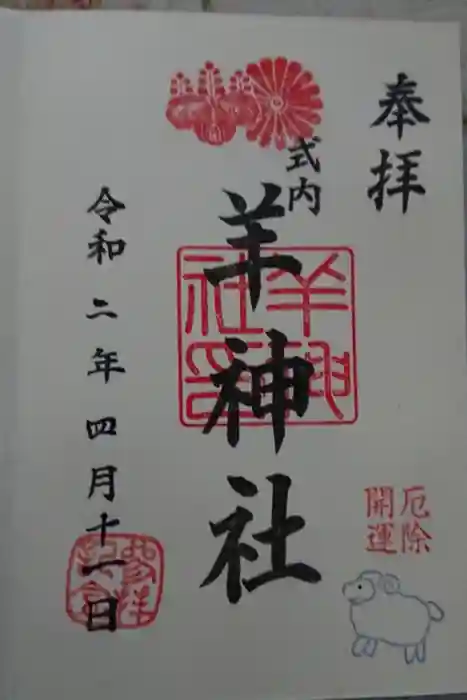 奉拝
式内
羊神社
羊神社印
令和二年四月十一日
厄除
開運